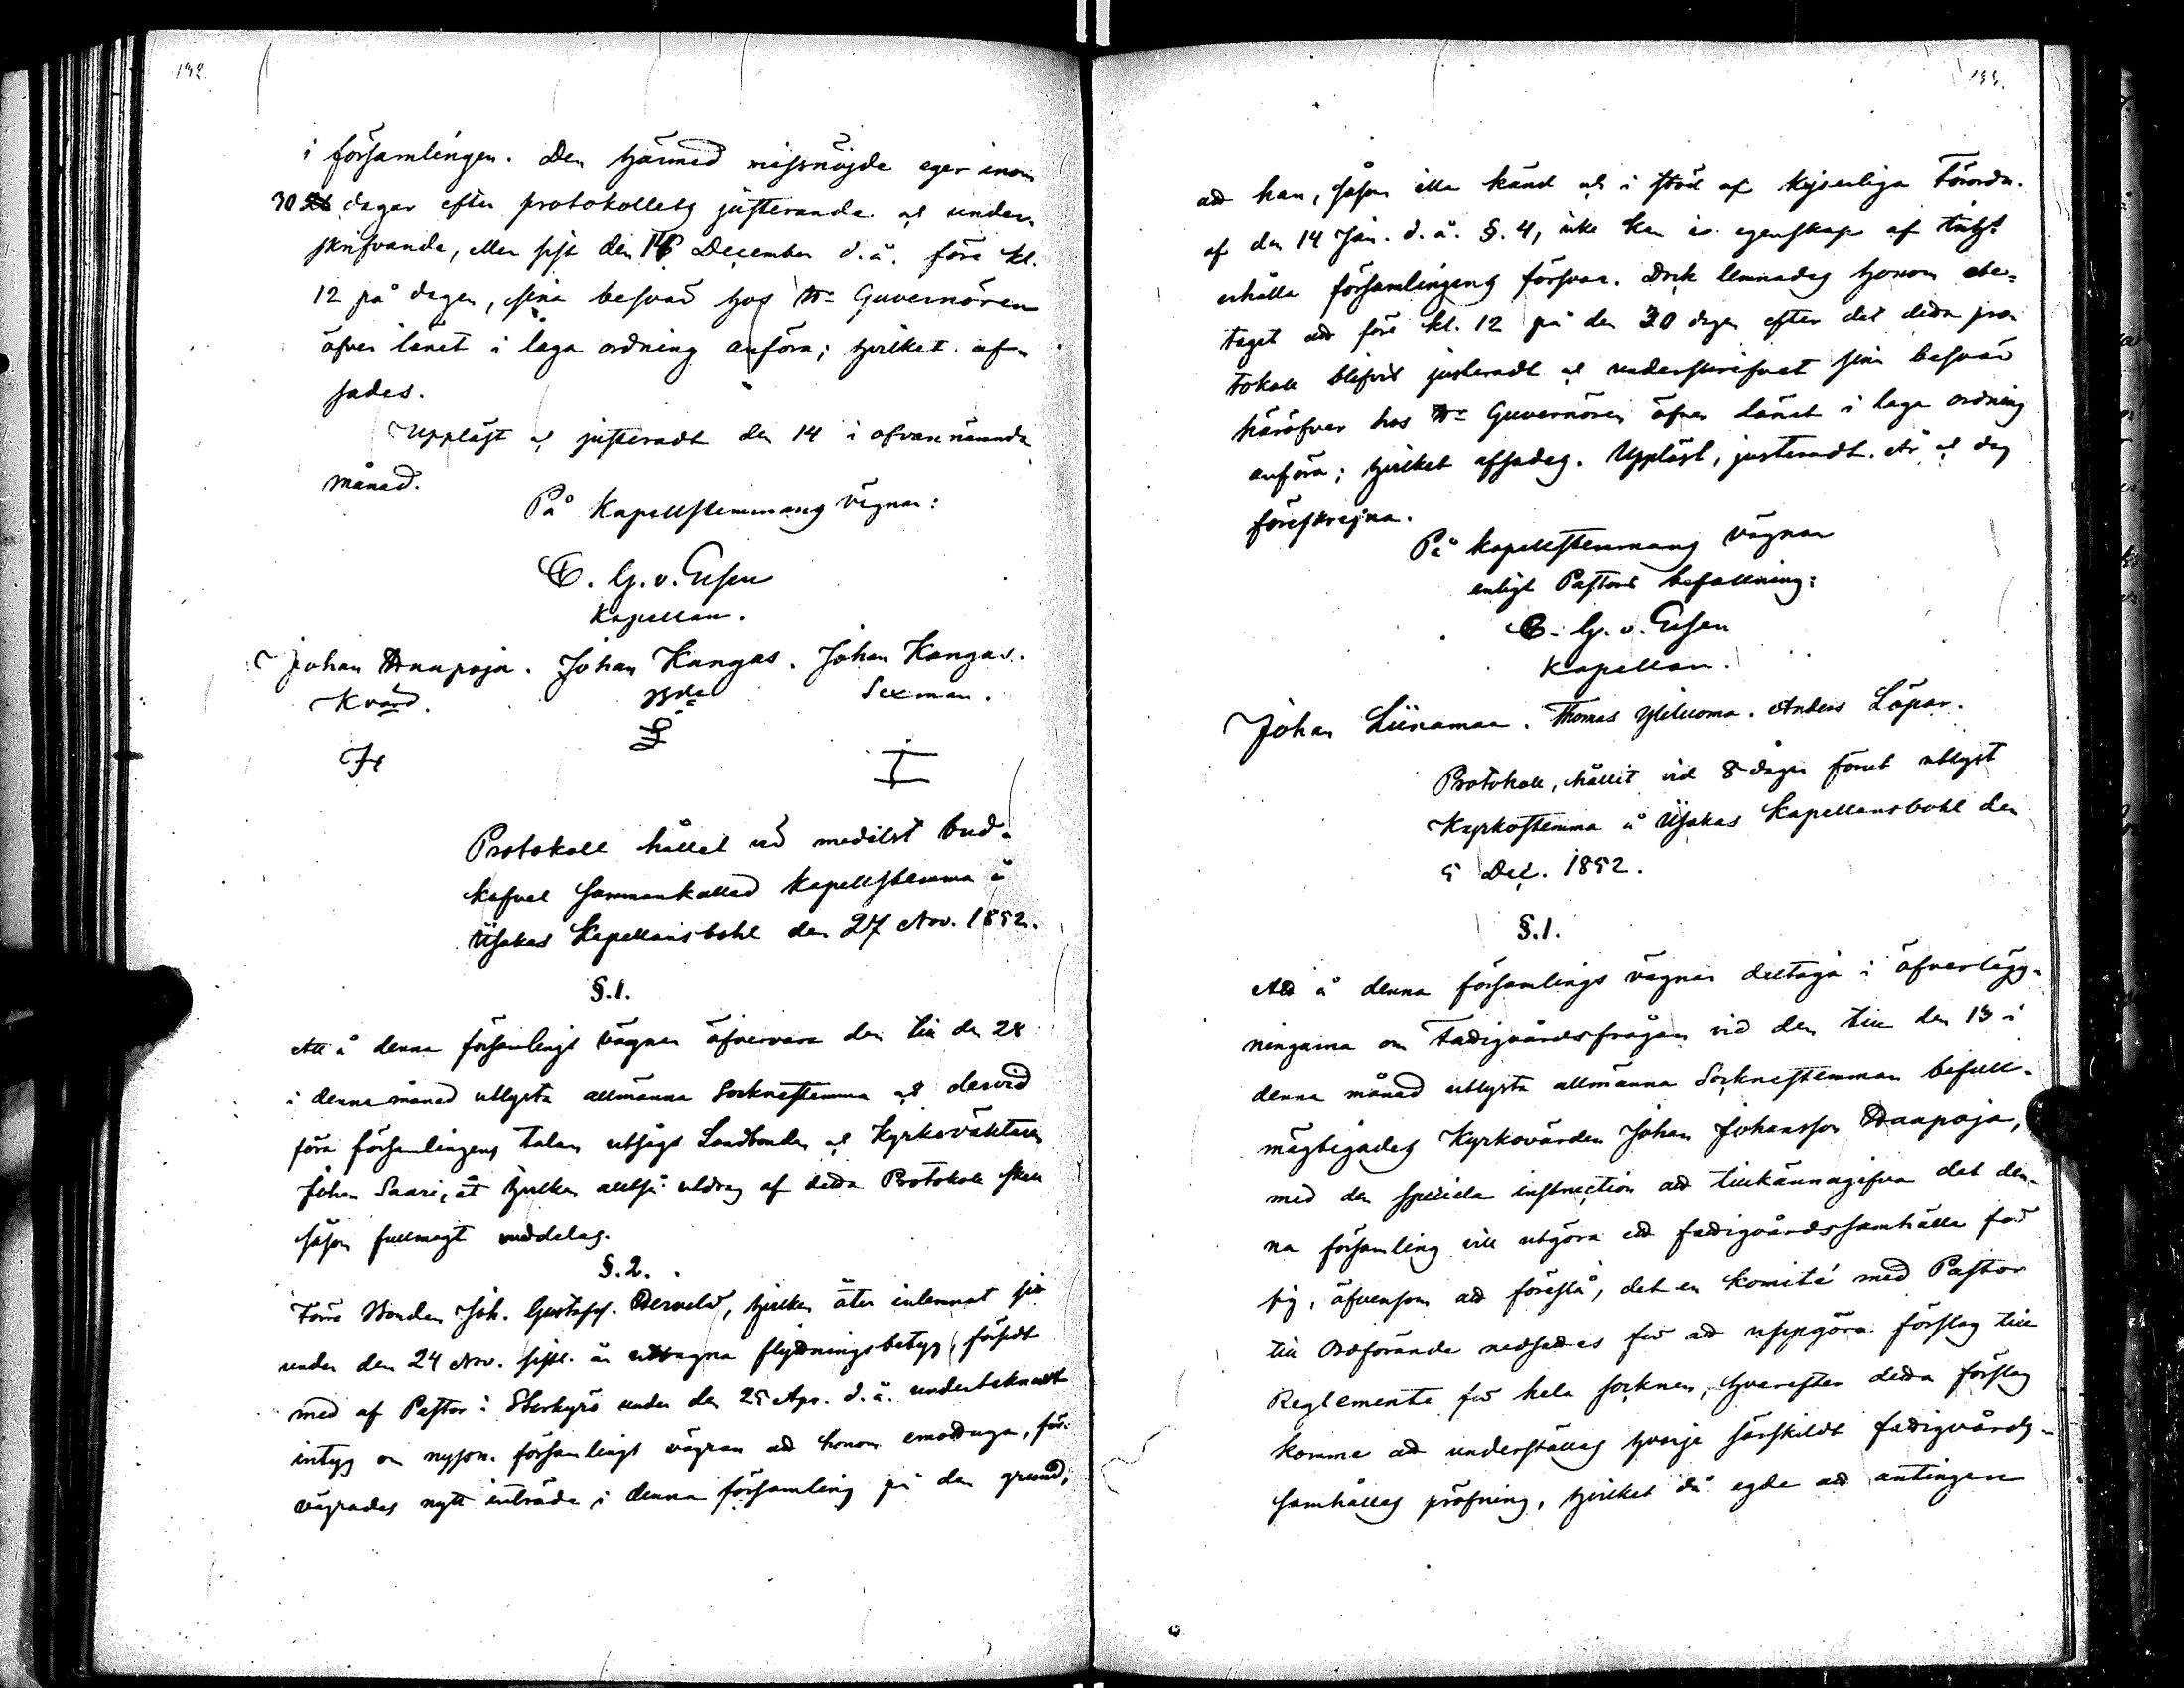 132.
i församlingen. Den härmed missnöjde eger inom
30 dagar efter protokollets justerande och under-
skrifvande, eller sist den 14 December d. å. före kl.
12 på dagen, sina besvär hos Hr Guvernören
öfver länet i laga ordning anföra; hvilket af-
sades.
Uppläst och justeradt den 14 i ofvannämnda
månad.
På Kapellstemmans vägnar:
C. G. v. Essen
Kapellan.
Johan Haapoja. Johan Kangas. Johan Kangas.
Kvärd. Sexman.
Protokoll hållet vid medelst bud-
kafvel sammankallad Kapellstemma å
Ylistaro Kapellansbohl den 27 Nov. 1852.
§.1.
Att å denna församlings vägnar öfvervara den till den 28
i denna månad utlysta allmänna Sockenstemma och dervid
föra församlingens talan utsågs Landbonden och Kyrkoväktaren
Johan Saari, åt hvilken alltså utdrag af detta Protokoll skall
såsom fullmagt meddelas.
§.2.
Förre Bonden Joh. Gustafss. Hervela, hvilken åter inlemnat sitt
under den 24 Nov. sistl. år uttagna flyttningsbetyg, försedt
med af Pastor i Storkyro under den 25 Apr. d. å. undertecknadt
intyg om nyssn. församlings vägran att honom emottaga, för-
vägrades nytt inträde i denna församling på den grund,
133.
att han, såsom illa känd och i stöd af Kejserliga Förordn.
af den 14 Jan. d. å. §. 4, icke kan i egenskap af
erhålla församlingens försvar. Dock lemnades honom obe-
taget att före kl. 12 på den 30 dagen efter det detta pro-
tokoll blifvit justeradt och underskrifvet sina besvär
häröfver hos Hr Guvernören öfver länet i laga ordning
anföra; hvilket afsades. Uppläst, justeradt. År och dag
föreskrefna.
På Kapellstemmans vägnar
enligt Pastors befallning:
C. G. v. Essen
Kapellan.
Johan Liinamaa. Thomas Yliluoma. Anders Löpar.
Protokoll, hållit vid 8 dagar förut utlyst
Kyrkostemma å Ylistaro Kapellansbohl den
5 Dec. 1852.
§.1.
Att å denna församlings vägnar deltaga i öfverlägg-
ningarna om Fattigvårdsfrågan vid den till den 13 i
denna månad utlysta allmänna Sockenstemman befull-
mägtigades Kyrkovärden Johan Johansson Haapoja,
med den speciela instruction att tillkännagifva det den-
na församling vill utgöra ett fattigvårdssamhälle för
sig, äfvensom att föreslå, det en Komité med Pastor
till Ordförande nedsattes för att uppgöra förslag till
Reglemente för hela socknen, hvarefter detta förslag
komme att underställas hvarje särskildt fattigvårds-
samhälles pröfning, hvilket då egde att antingen